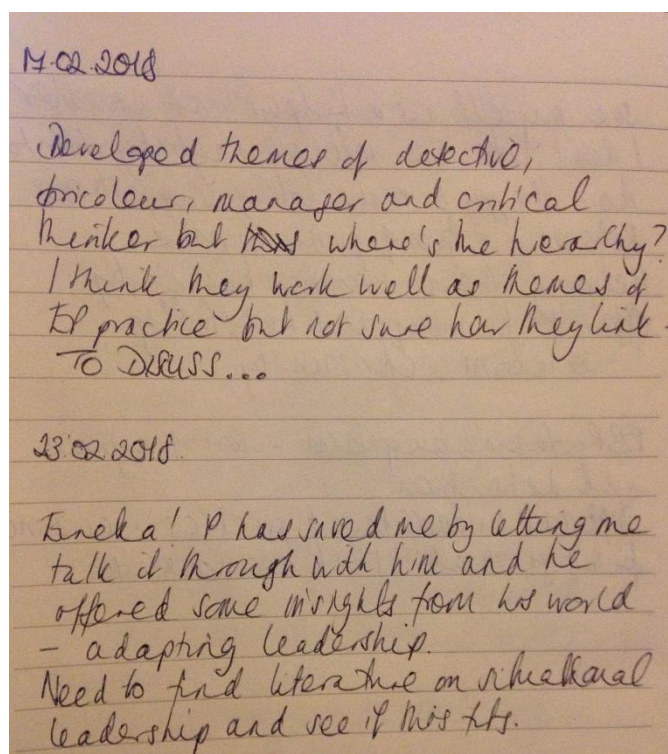 17.02.2018
Developed themes of detective,
bricoleur, manager and critical
thinker but where's the hierarchy?
I think they work well as themes of
EP practice but not sure how they link.
TO DISCUSS...
23.02.2018.
Eureka! P has saved me by letting me
talk it through with him and he
offered some insights from his world
- adapting leadership.
Need to find literature on situational
leadership and see if this fits.